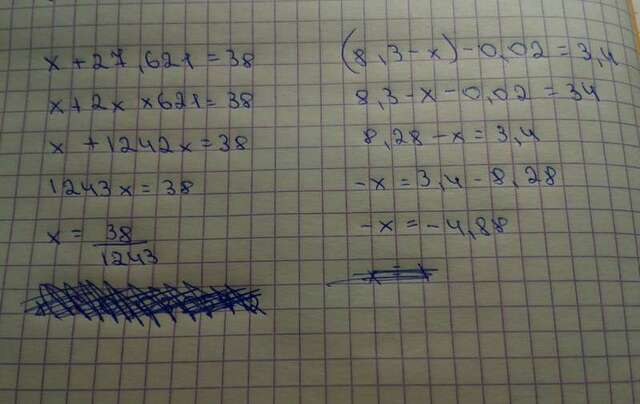 x + 27,621 = 38
x + 2x x 621 = 38
x + 1242x = 38
1243x = 38
x = 38/1243
(8,3 - x) - 0,02 = 3,4
8,3 - x - 0,02 = 34
8,28 - x = 3,4
-x = 3,4 - 8,28
-x = -4,88